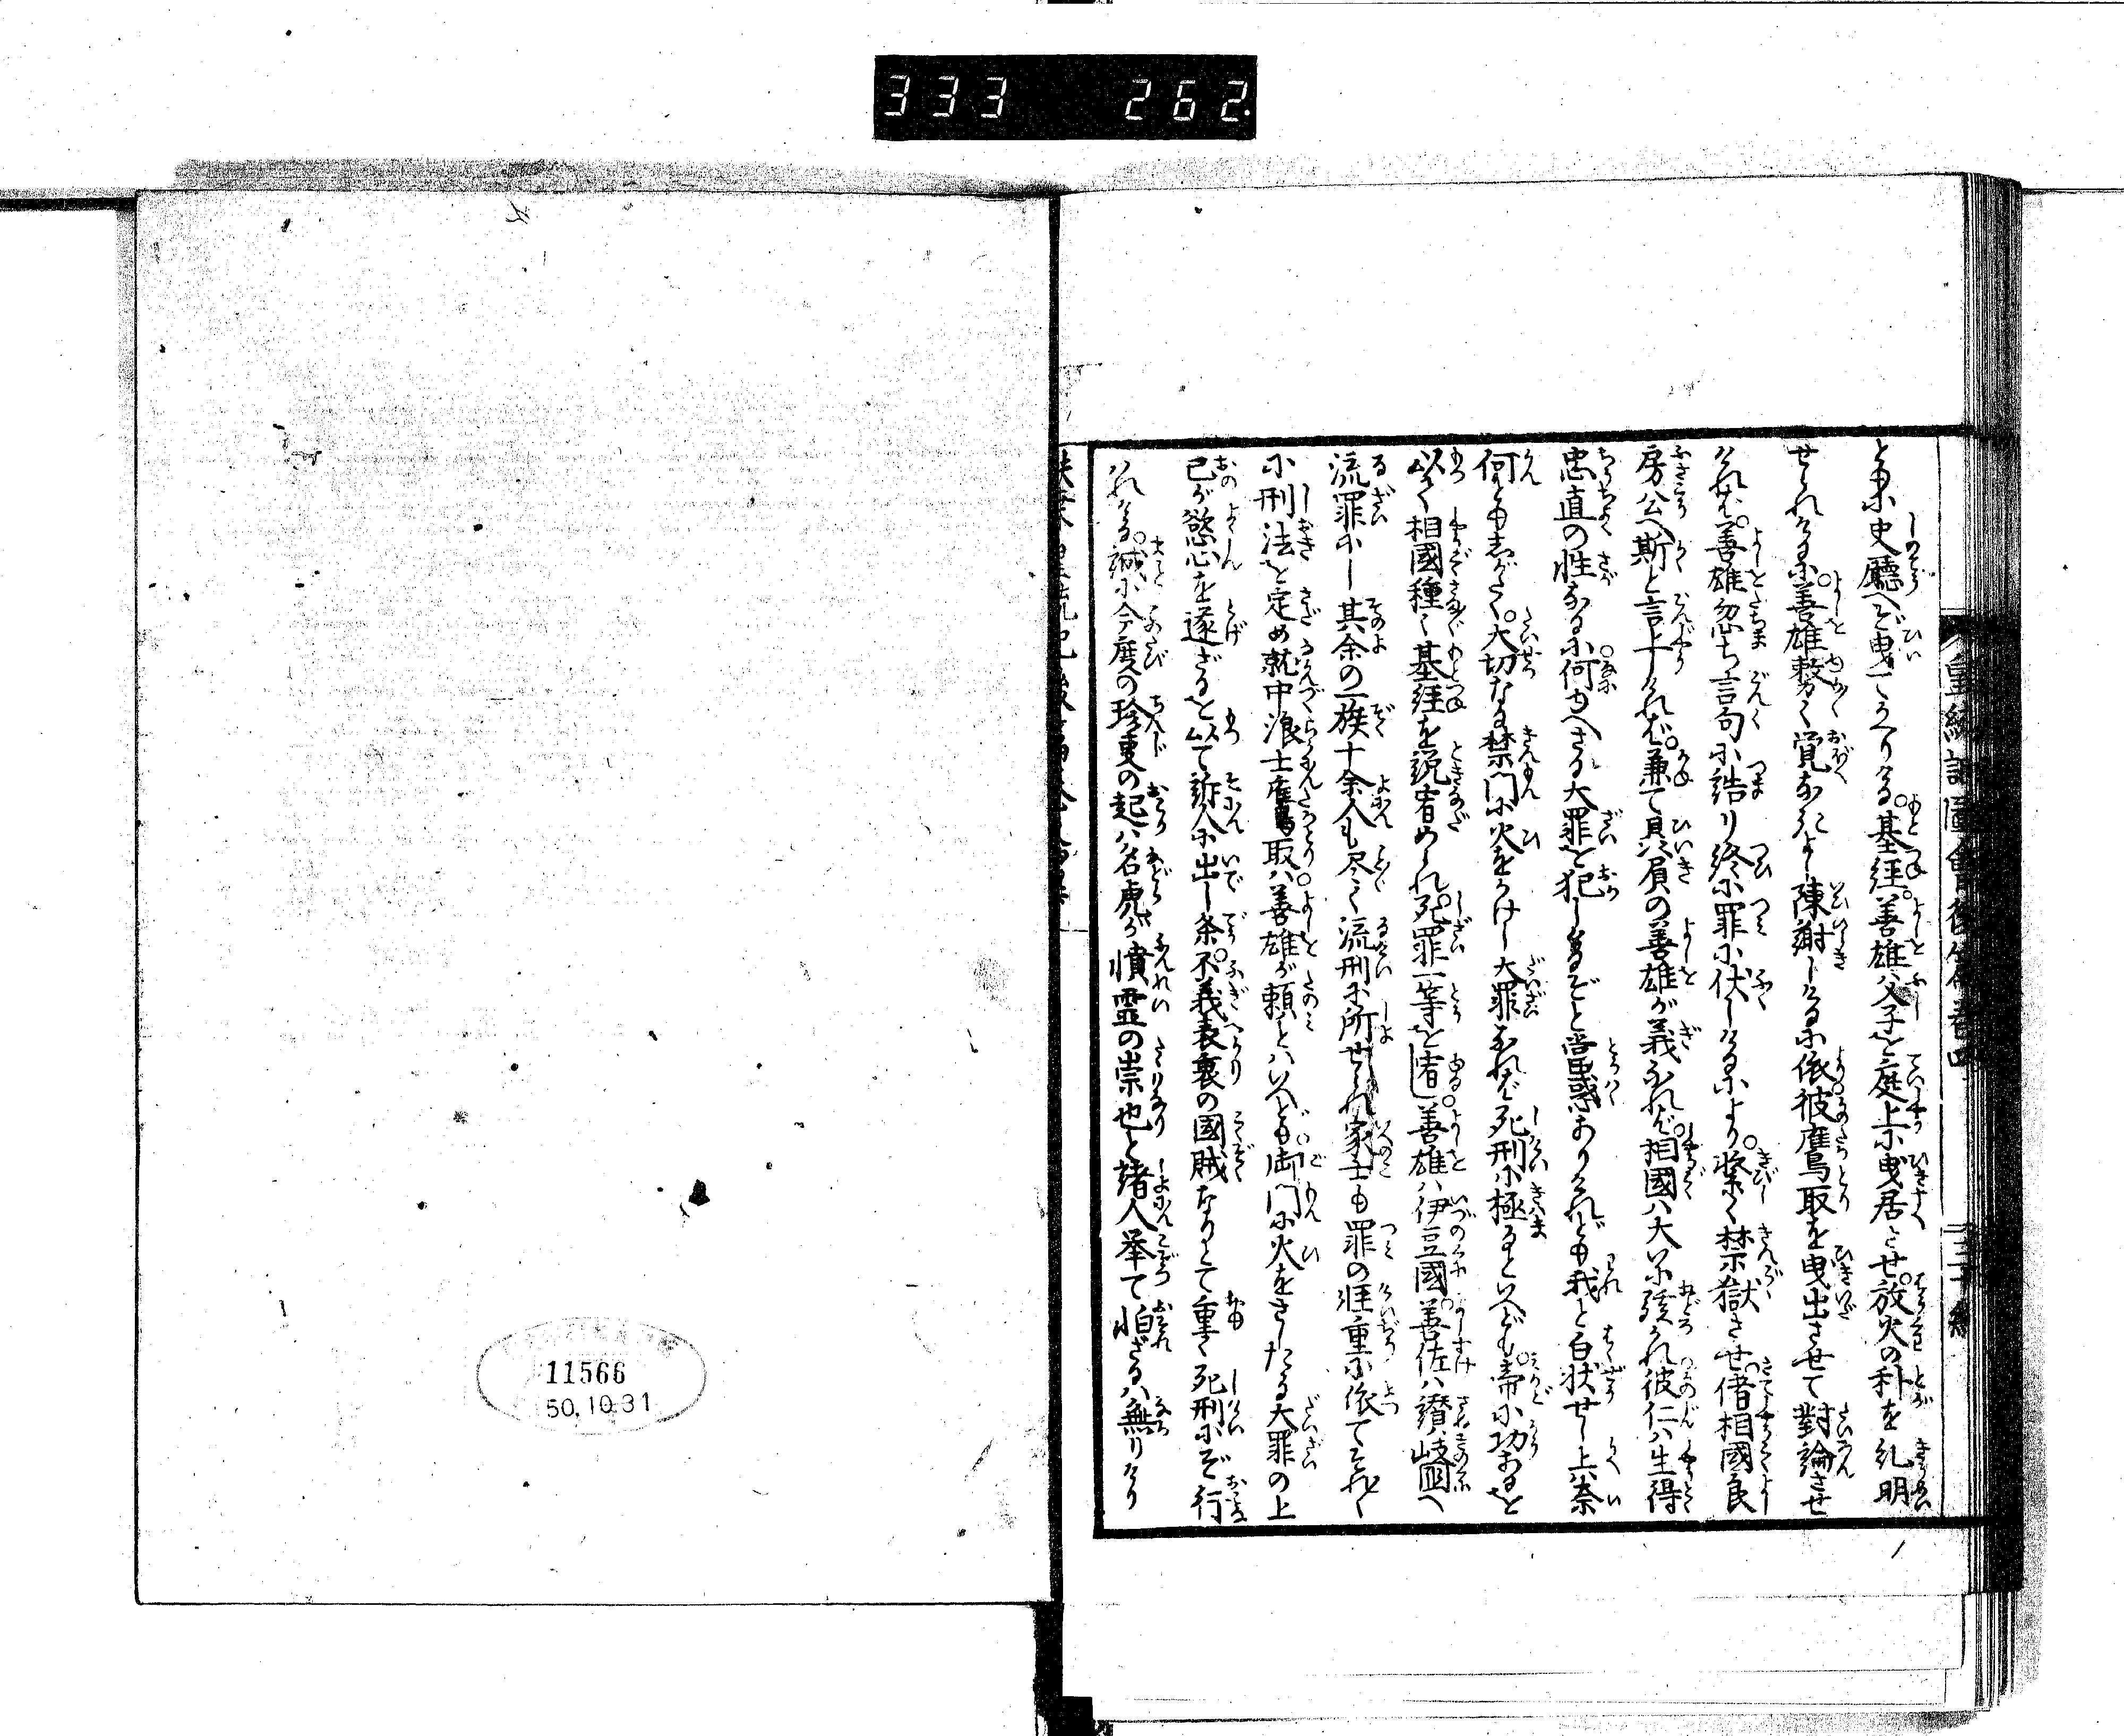 333 262
皇統記圖會後篇巻四
ともに史廳へぞ曳てかへりける。基経。善雄父子を庭上に曳居させ。放火の科を糺明
せられけるに。善雄敢て覚なきよし陳謝しけるに依。彼鷹取を曳出させて對論させ
ければ。善雄忽ち言句に詰り終に罪に伏しけるにより。緊く禁獄させ。偖相國良
房公へ斯と言上ければ。兼て贔屓の善雄が義なれば。相國ハ大に駭かれ彼仁ハ生得
忠直の性なるに。何ゆへさる大罪を犯しけるぞと當惑ありけれども我と白状せし上ハ奈
何ともしがたく。大切なる禁門に火をかけし大罪なれば死刑に極るといへども。帝に功あるを
以て相國種々基経を説宥められ。死罪一等を宥し。善雄ハ伊豆國。善佐ハ讃岐國へ
流罪にし其余の一族十余人も尽く流刑に所せられ家士も罪の軽重に依てそれ〲
に刑法を定め就中浪士鷹取ハ。善雄が頼とハいへども御門に火をさしたる大罪の上
己が慾心を遂ざるを以て訴人に出し条。不義表裏の國賊なりとて重く死刑にぞ行
ハれける。誠に今度の珍事の起ハ名虎が憤霊の祟也と諸人挙て怕ざるハ無りけり
11566
50.10.31